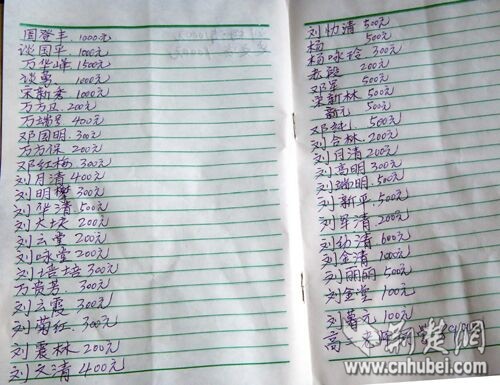 周登丰 1000元
谈国平 1000元
万华峰 1500元
谈勇 1000元
宋新孝 1000元
万方正 200元
万端号 400元
邓国明 300元
万方保 200元
邓红梅 300元
刘月清 400元
刘明樊 300元
刘华清 500元
刘大埃 200元
刘云堂 200元
刘咏堂 200元
刘培培 300元
万贵芳 300元
刘云霞 300元
刘菊红 300元
刘震林 200元
刘文清 400元
刘功清 500元
杨 500元
杨咏玲 300元
老段 200元
邓军 500元
宋新林 500元
500元
邓 500元
刘合林 200元
刘月清 200元
刘高明 300元
刘端明 500元
刘新平 500元
刘军清 200元
刘幼清 600元
刘金清 1000元
刘丽丽 500元
刘金堂 100元
刘 元 100元
高
荆楚网
www.cnhubei.com